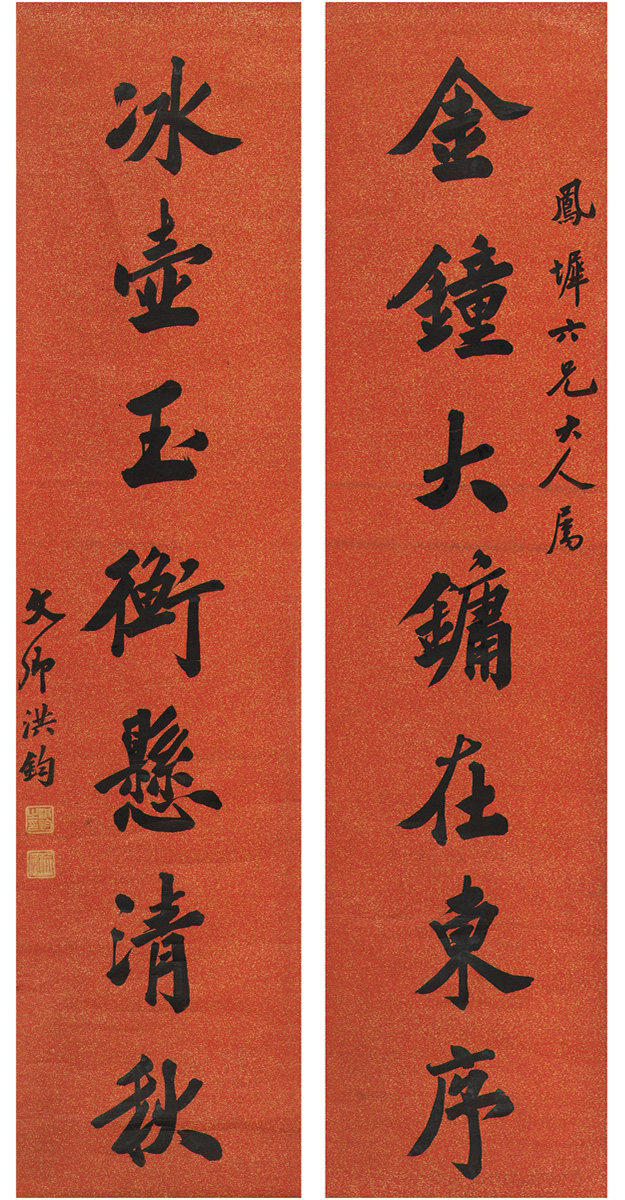 鳳墀六兄大人属
金鐘大鏞在東序
冰壺玉衡懸清秋
文卿洪鈞